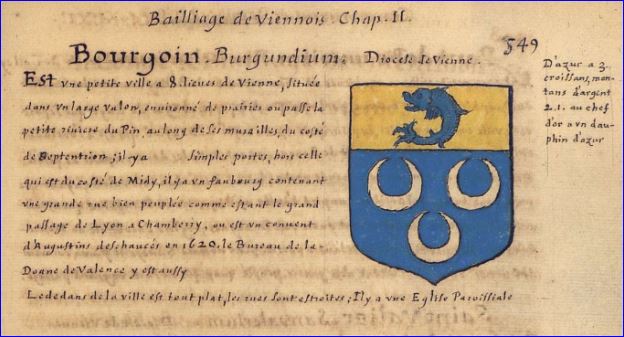 Bailliage de Viennois Chap. II.
549
Bourgoin. Burgundium. Diocese de Vienne.
Est vne petite ville a 8. lieues de Vienne, située
dans vn large valon, environné de prairies ou passe la
petite riviere du Pin, au long de ses murailles, du costé
de Septention ; il y a simples portes, hors celle
qui est du costé de Midy, il y a vn faubourg contenant
vne grande rue bien peuplée comme estant le grand
passage de Lyon a Chamberry, ou est vn couvent
d'Augustins deschaucés en 1620. le Bureau de la
Doane de Valence y est aussy
Le dedans de la ville est tout plat, les rues sont estroites ; Il y a vne Eglise Paroissiale
D'azur a 3.
croissans, mon-
tans d'argent
2. 1. au chef
d'or a vn dau-
phin d'azur